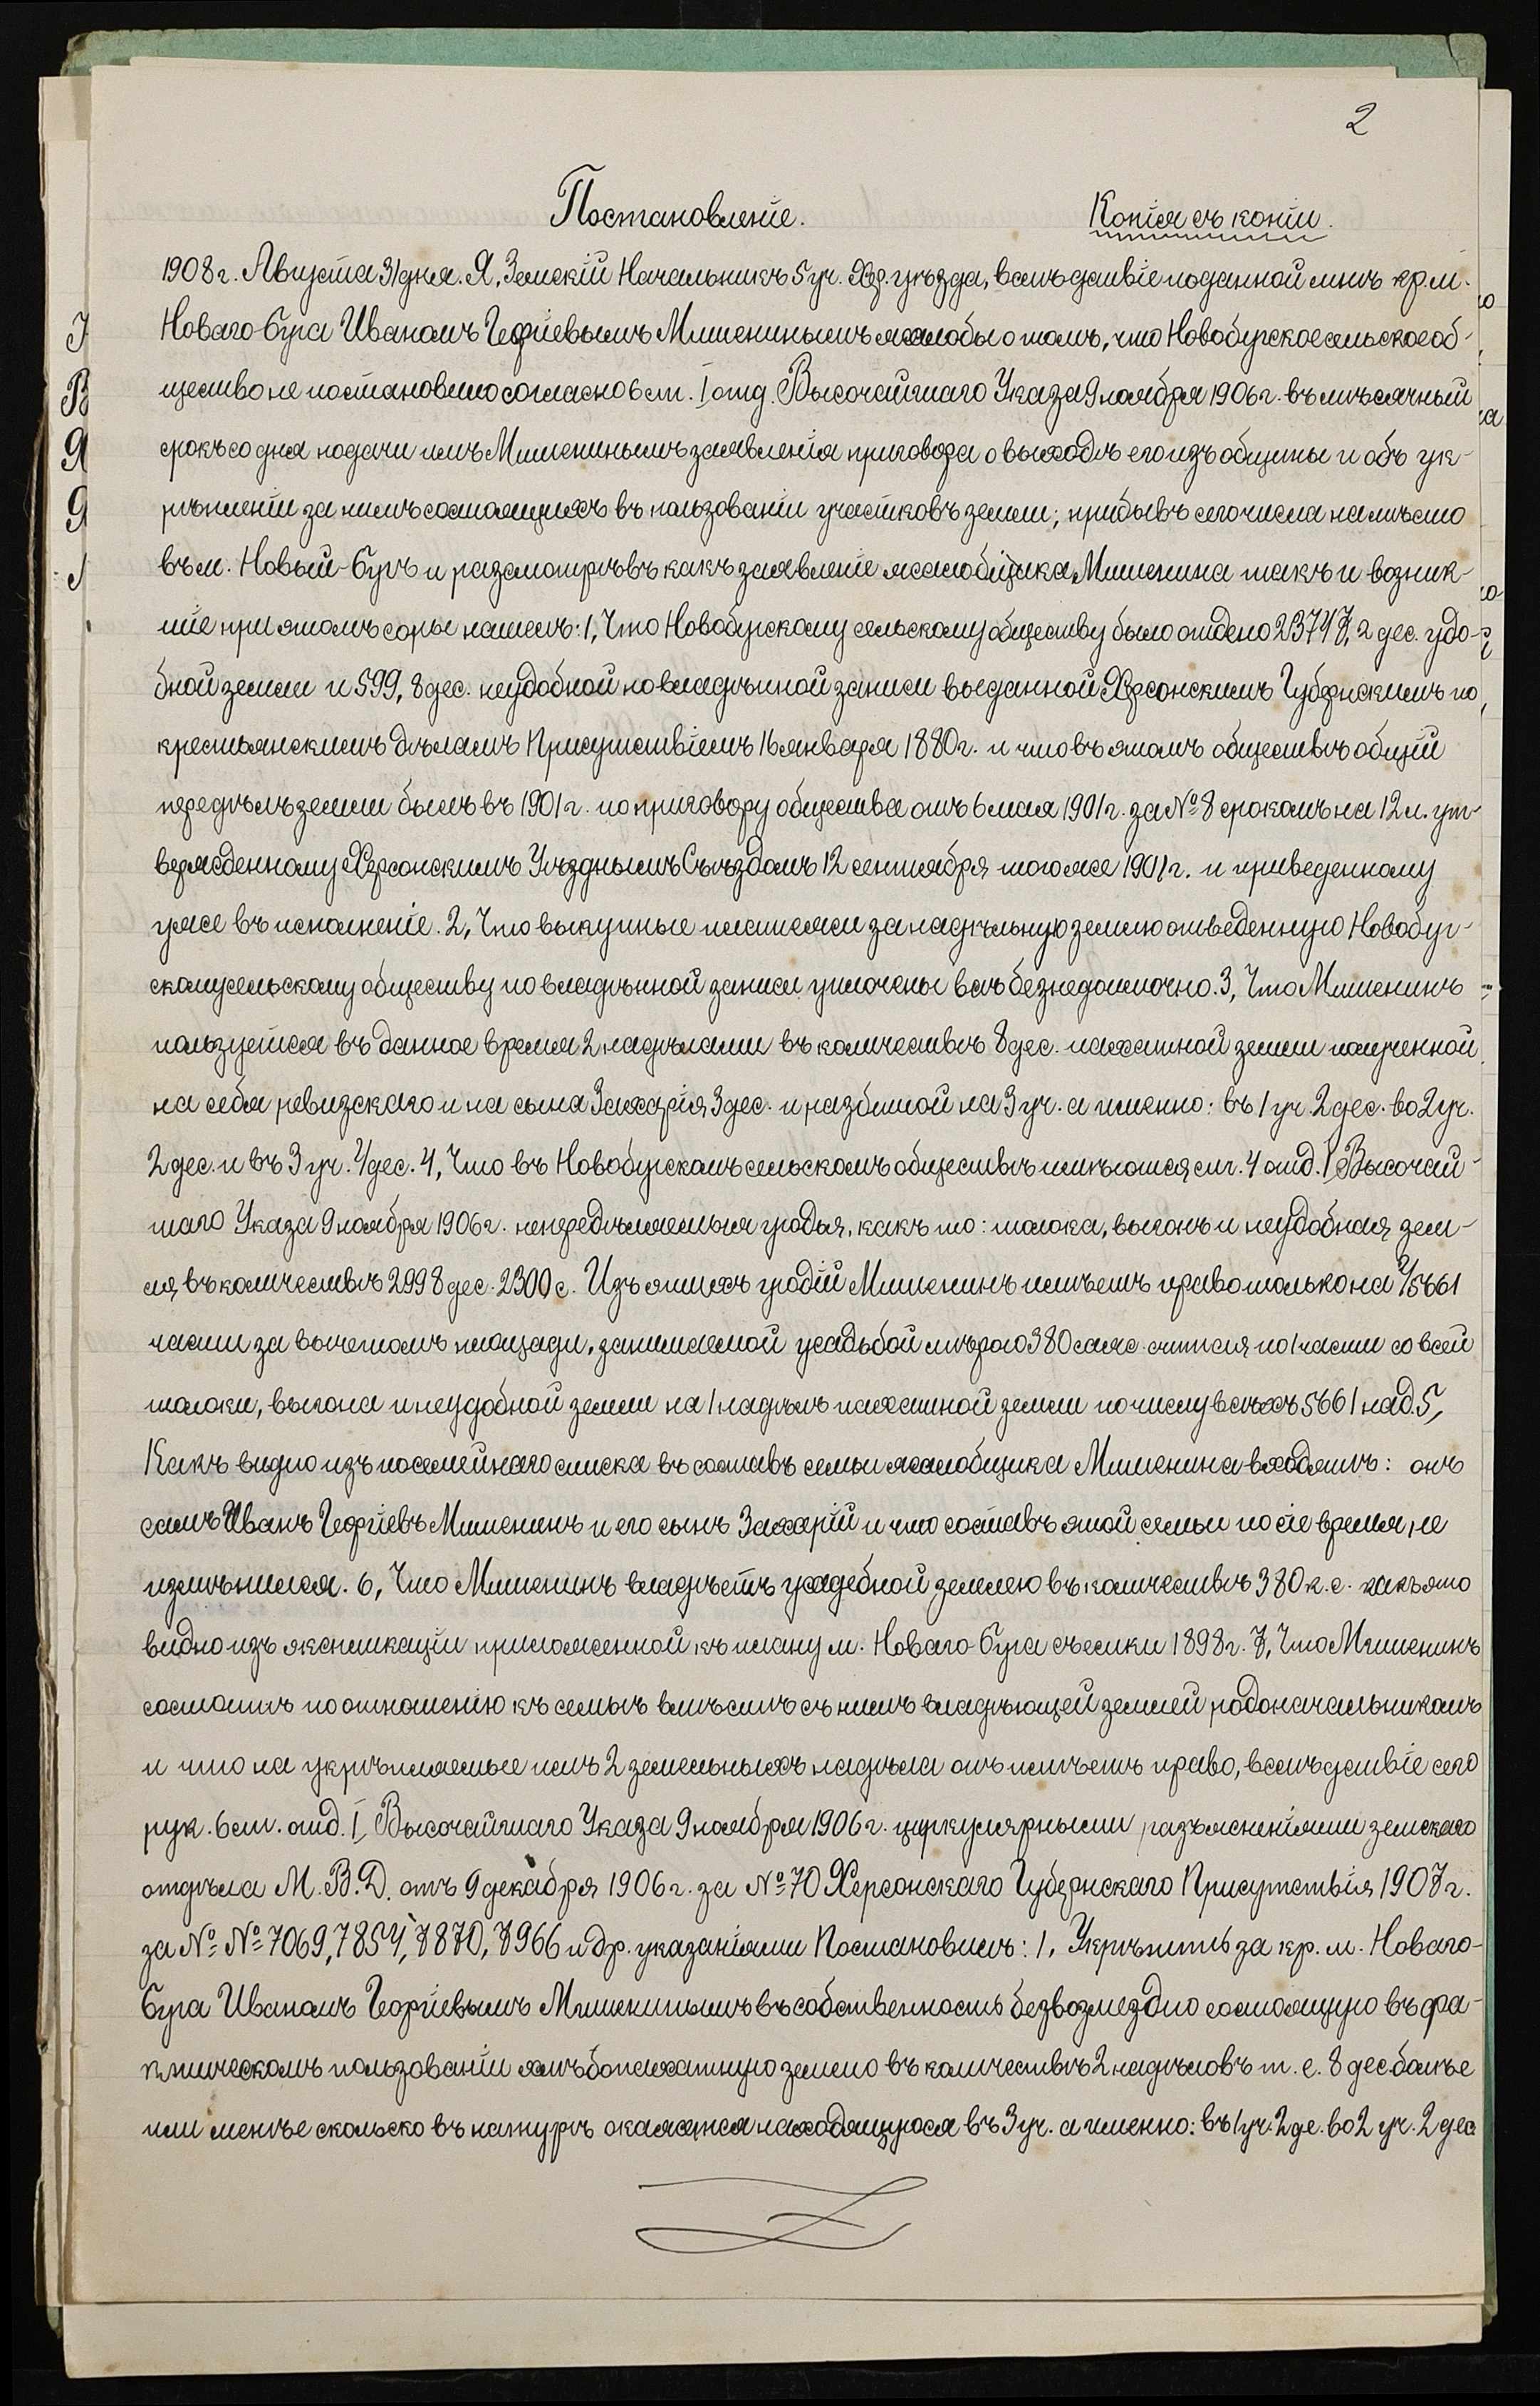 2
Постановленіе.
Копія съ копіи.
1908 г. Августа 31 дня. Я, Земскій Начальникъ 5 уч. Хер. уѣзда, вслѣдствіе поданной мнѣ кр. м.
Новаго Буга Иваномъ Георгіевымъ Мишенинымъ жалобы о томъ, что Новобугское сельское об-
щество не постановило согласно 6 ст. I отд. Высочайшаго Указа 9 ноября 1906 г. въ мѣсячный
срокъ со дня подачи имъ Мишенинымъ заявленія приговора о выходѣ его изъ общины и объ ук-
рѣпленіи за нимъ состоящихъ въ пользованіи участковъ земли; прибывъ сего числа на мѣсто
въ м. Новый-Бугъ и разсмотрѣвъ какъ заявленіе жалобщика Мишенина такъ и возник-
шіе при этомъ споры нашелъ: 1, Что Новобугскому сельскому обществу было отведено 23747,2 дес. удо-
бной земли и 599,8 дес. неудобной по владѣнной записи выданной Херсонскимъ Губернскимъ по
крестьянскимъ дѣламъ Присутствіемъ 16 января 1880 г. и что въ этомъ обществѣ общій
передѣлъ земли былъ въ 1901 г. по приговору общества отъ 6 мая 1901 г. за № 8 срокомъ на 12 л. ут-
вержденному Херсонскимъ Уѣзднымъ Съѣздомъ 12 сентября того же 1901 г. и приведенному
уже въ исполненіе. 2, Что выкупные платежи за надѣльную землю отведенную Новобуг-
скому сельскому обществу по владѣнной записи уплочены всѣ безнедоимочно. 3, Что Мишенинъ
пользуется въ данное время 2 надѣлами въ количествѣ 8 дес. пахатной земли полученной
на себя ревизскаго и на сына Захарія 3 дес. и разбитой на 3 уч. а именно: въ 1 уч. 2 дес. во 2 уч.
2 дес. и въ 3 уч. 4 дес. 4, Что въ Новобугскомъ сельскомъ обществѣ имѣются сог. 4 отд. I Высочай-
шаго Указа 9 ноября 1906 г. непередѣляемыя угодья, какъ то: толока, выгонъ и неудобная зем-
ля, въ количествѣ 2998 дес. 2300 с. Изъ этихъ угодій Мишенинъ имѣетъ право только на 2/5661
части за вычетомъ площади, занимаемой усадьбой мѣрою 380 саж. считая по 1 части со всей
толоки, выгона и неудобной земли на 1 надѣлъ пахатной земли по числу всѣхъ 5661 над. 5,
Какъ видно изъ посемейнаго списка въ составъ семьи жалобщика Мишенина входятъ: онъ
самъ Иванъ Георгіевъ Мишенинъ и его сынъ Захарій и что составъ этой семьи по сіе время не
измѣнился. 6, Что Мишенинъ владѣетъ усадебной землею въ количествѣ 380 к. с. какъ это
видно изъ экспликаціи приложенной къ плану м. Новаго-Буга съемки 1898 г. 7, Что Мишенинъ
состоитъ по отношенію къ семьѣ вмѣстѣ съ нимъ владѣющей землей родоначальникомъ
и что на укрѣпляемые имъ 2 земельныхъ надѣла онъ имѣетъ право, вслѣдствіе сего
рук. 6 ст. отд. I, Высочайшаго Указа 9 ноября 1906 г. циркулярными разъясненіями земскаго
отдѣла М. В. Д. отъ 9 декабря 1906 г. за № 70 Херсонскаго Губернскаго Присутствія 1907 г.
за № № 7069, 7854, 7870, 7966 и др. указаніями Постановилъ: 1, Укрѣпить за кр. м. Новаго-
Буга Иваномъ Георгіевымъ Мишенинымъ въ собственность безвозмездно состоящую въ фа-
ктическомъ пользованіи хлѣбопахатную землю въ количествѣ 2 надѣловъ т. е. 8 дес. болѣе
или менѣе сколько въ натурѣ окажется находящуюся въ 3 уч. а именно: въ 1 уч. 2 де. во 2 уч. 2 дес